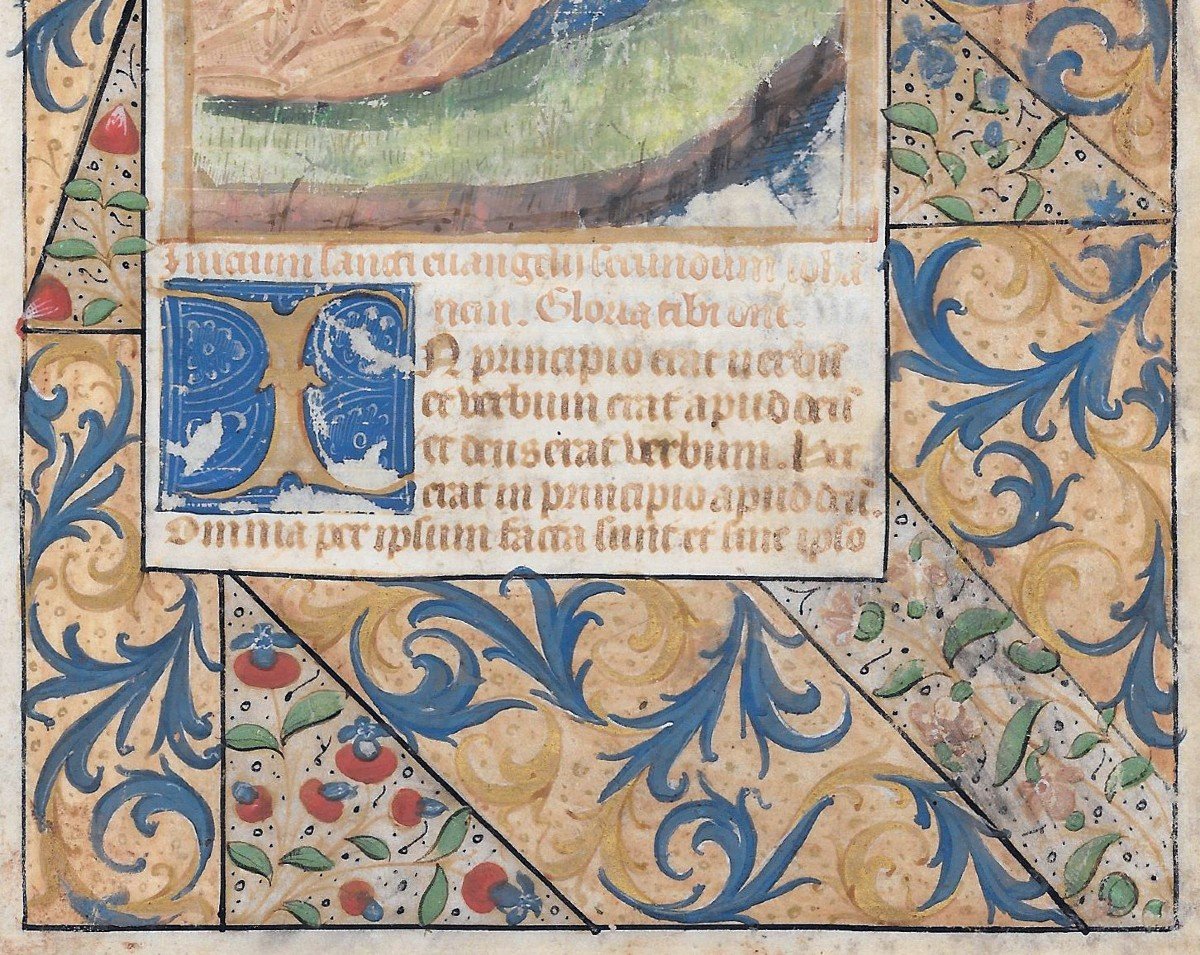 Inicium sancti euangelij secundum ioha
nem. Gloria tibi dne.
IN principio erat uerbū
et verbum erat apud deū
et deus erat verbum. Hoc
erat in principio apud deū.
Omnia per ipsum facta sunt et sine ipso